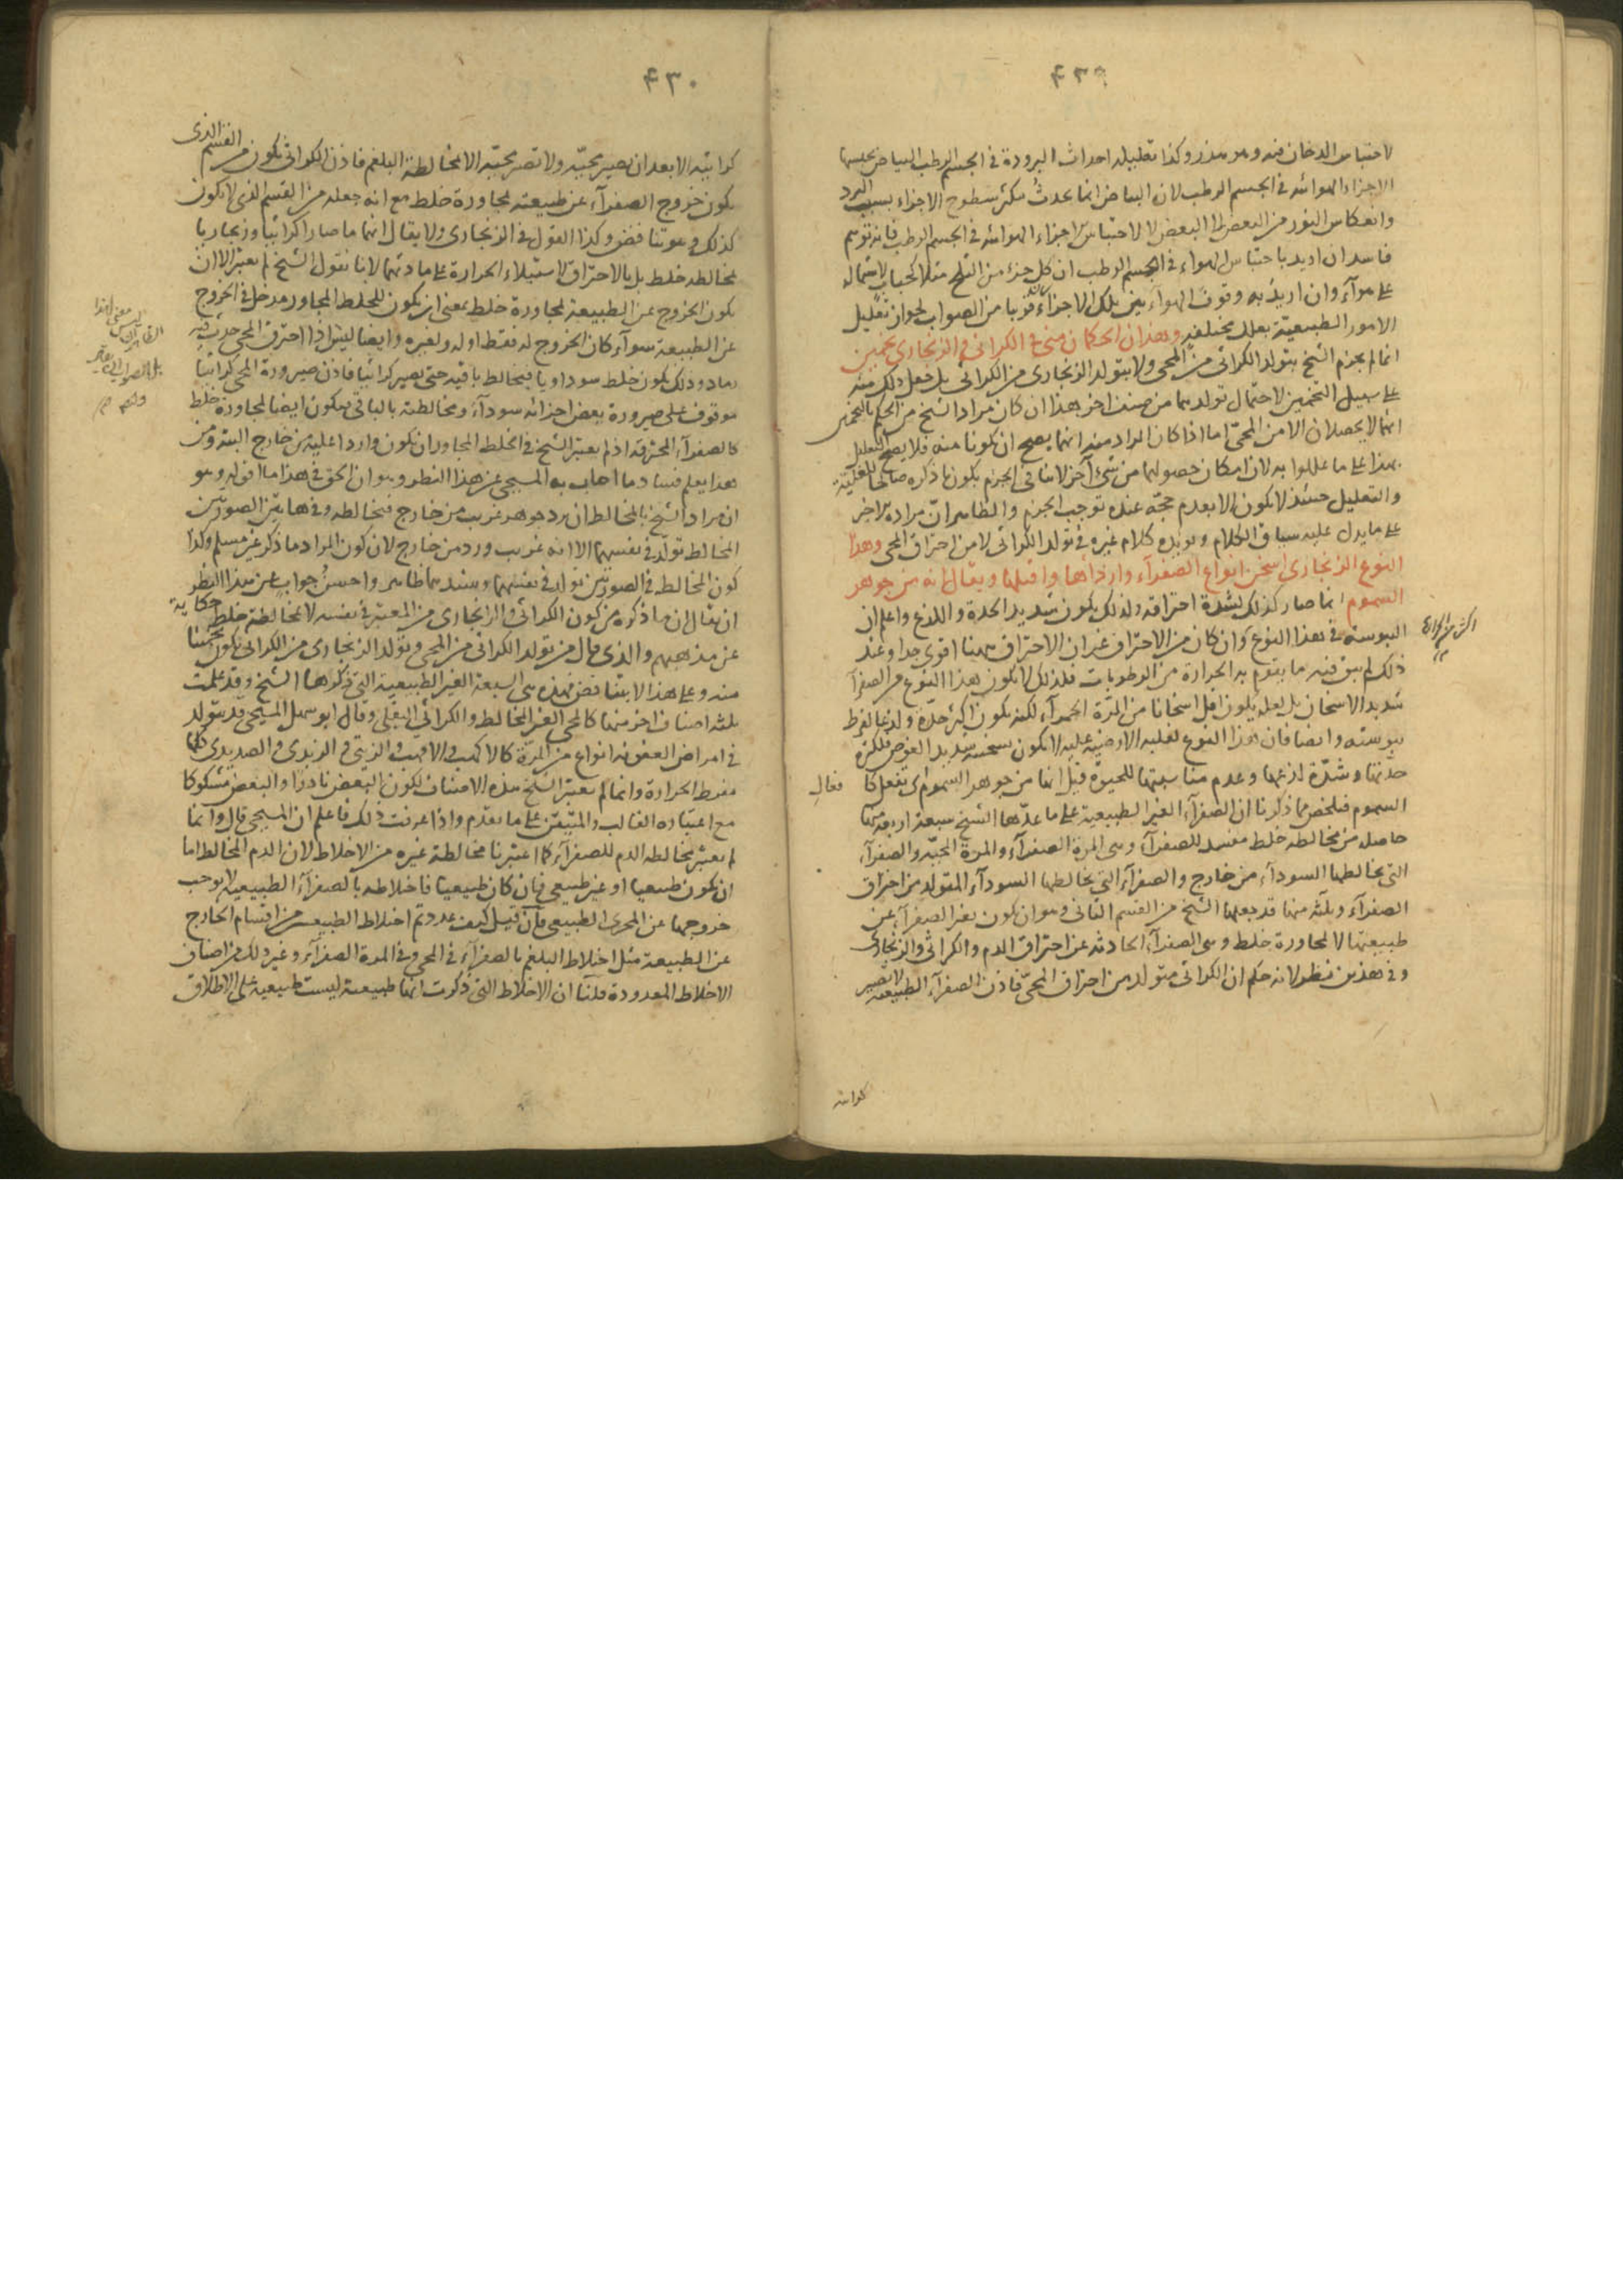 ٤٣٩
لاحتباس الدخان فيه وهو هذر وكذا تعليله احداث البرودة في الجسم الرطب البياض بحبسها
الاجزاء الهوائيه في الجسم الرطب لان البياض انما يحدث بتكثر سطوح الاجزاء بسبب البرد
وانعكاس النور من البعض الى البعض لا لاحتباس الاجزاء الهوائيه في الجسم الرطب فانه توهم
فاسد ان اريد باحتباس الهواء في الجسم الرطب ان كل جزء من الثلج مثلا كحباب لاشتماله
على هوآء وان اريد به وقوف الهواء بين تلك الاجزاء قريبا من الصواب لجواز تعليل
الامور الطبيعيّة بعلل مختلفه وهذان الحكمان مني في الكراثي والزنجاري تخمين
انما لم يجزم الشيخ بتولد الكراثي من المحي ولا بتولد الزنجاري من الكراثي بل جعل ذلك منه
على سبيل التخمين لاحتمال تولدهما من صنف اخر هذا ان كان مراد الشيخ من الحكم بالتخمين
انهما لا يحصلان الا من المحيّ اما اذا كان المراد منه انهما يصح ان يكونا منه فلا يصح التعليل
بهذا على ما عللوا به لان امكان حصولهما من شئ آخر لا ينافي الجزم بكون ما ذكره صالحا للعليّة
والتعليل حينئذ لا يكون الا بعدم حجّة عنده توجب الجزم والظاهر انّ مراده الاخر
على ما يدل عليه سياق الكلام ويؤيده كلام غيره في تولد الكراثي لا من احتراق المحي وهذا
النوع الزنجاري اسخن انواع الصفرآء وارداها واقتلها ويقال انه من جوهر
السموم انما صار كذلك لشدة احتراقه ولذلك يكون شديد الحدة واللذع واعلم ان
اليبوسة في هذا النوع وان كان من الاحتراق غير ان الاحتراق ههنا اقوى جدا وعند
ذلك لم يبق فيه ما يقوم به الحرارة من الرطوبات فلذلك لا يكون هذا النوع من الصفرآ
شديد الاسخان بل لعله يكون اقل اسخانا من المرّة الحمرآء لكنه يكون اكثر حدّة ولذعا لفرط
يبوسته وايضا فان هذا النوع لغلبة الارضيّة عليه لا يكون تسخينه شديد الغوص فلكثرة
حدّتها وشدّة لذعها وعدم مناسبتها للحيوة قيل انها من جوهر السموم اى تفعل كا
السموم فتلخص مما ذكرنا ان الصفرآء الغير الطبيعية على ما عدّها الشيخ سبعة اربعة منها
حاصله من مخالطه خلط مفسد للصفرآء وهي المرة الصفرآء والمرة المحيّه والصفرآء
التى يخالطها السودآء من خارج والصفرآء التى يخالطها السودآء المتولد من احتراق
الصفرآء وثلثة منها قد جعلها الشيخ من القسم الثانى وهو ان يكون تغير الصفرآء عن
طبيعتها لا لمجاورة خلط وهى الصفرآء الحادثه عن احتراق الدم والكراثي والزنجارى
وفي هذين نظر لانه حكم ان الكراثي متولد من احتراق المحيّ فاذن الصفرآء الطبيعية لا تصير
كراثيه
فعالِ
٤٣٠
كراثيّه الا بعد ان يصير محيّه ولا تصير محيّه الا لمخالطة البلغم فاذن الكراثي يكون من القسم الذى
يكون خروج الصفرآء عن طبيعته لمجاورة خلط مع انه جعله من القسم الذى لا يكون
كذلك وهو تناقض وكذا القول في الزنجاري ولا يقال انهما ما صارا كراثيا وزنجاريا
لمخالطه خلط بل بالاحتراق لاستيلاء الحرارة على مادتهما لانا نقول الشيخ لم يعتبر الا ان
يكون الخروج عن الطبيعة لمجاورة خلط بمعنى ان يكون للخلط المجاور مدخل في الخروج
عن الطبيعة سوآء كان الخروج له فقط او له ولغيره وايضا ليس اذا احترق المحي حدث فيه
رماد وذلك يكون خلط سوداويا فيخالط باقيه حتى يصير كراثيا فاذن صيرورة المحي كراثيّاً
موقوف على صيرورة بعض اجزائه سودآء ومخالطته بالباقى فيكون ايضا لمجاورة خلط
كالصفرآء المحترقه اذ لم يعتبر الشيخ في الخلط المجاور ان يكون واردا عليه من خارج البته ومن
هذا يعلم فساد ما اجاب به المسيحي عن هذا النظر وهو ان الحق في هذا ما اقوله وهو
ان مراد الشيخ بالمخالط ان يرد جوهر غريب من خارج فيخالطه وفي هاتين الصورتين
المخالط تولّد في نفسهما الا انه غريب ورد من خارج لان كون المراد ما ذكر غير مسلم وكذا
كون المخالط في الصورتين تولد في نفسهما وسندهما ظاهر واحسن جواب عن هذا النظر
ان يقال ان ما ذكره من كون الكراثي والزنجاري من المتغير في نفسه لا لمخالطة خلط حكاية
عن مذهبهم والذى قال من تولد الكراثي من المحي وتولد الزنجارى من الكراثي يكون تخمينا
منه وعلى هذا لا تناقض فهذه هى السبعة الغير الطبيعية التى ذكرها الشيخ وقد علمت
ثلثه اصناف اخر منها كالمحي الغير المخالط والكراثي البقلى وقال ابو سهل المسيحي قد يتولد
في امراض العفونه انواع من المرّة كالاكهب والاصهب والزيتي والزبدى والصديدى كلها
مفرط الحرارة وانما لم يعتبر الشيخ هذه الاصناف لكون البعض نادرا والبعض مشكوكا
مع اعتباره الغالب والمتيقن على ما تقدم واذا عرفت ذلك فاعلم ان المسيحي قال وانما
لم يعتبر مخالطه الدم للصفرآء كما اعتبرنا مخالطة غيره من الاخلاط لان الدم المخالط اما
ان يكون طبيعيا او غير طبيعي فان كان طبيعيا فاختلاطه بالصفرآء الطبيعية لا يوجب
خروجها عن المجرى الطبيعى فان قيل كيف عددتم اختلاط الطبيعى من اقسام الخارج
عن الطبيعة مثل اختلاط البلغم بالصفرآء في المحي وفي المرة الصفرآء وغير ذلك من اصناف
الاخلاط المعدودة قلنا ان الاخلاط التى ذكرت انها طبيعية ليست طبيعية على الاطلاق